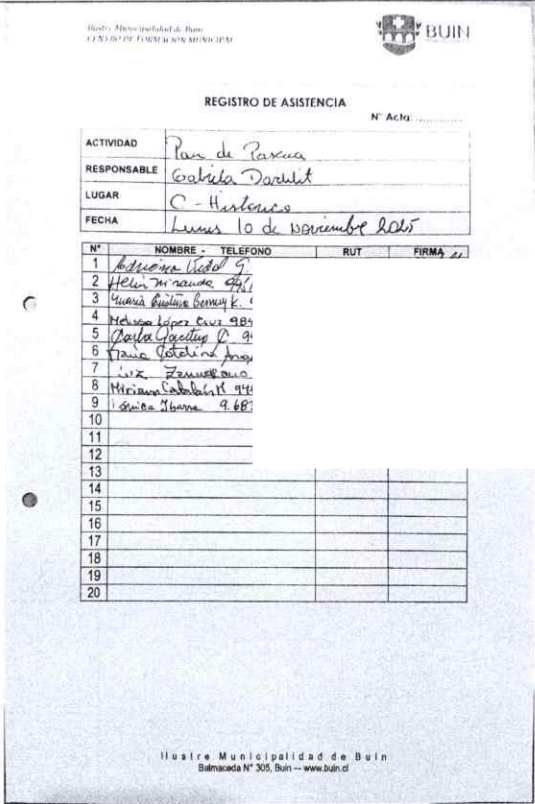 Ilustre Municipalidad de Buin
CENTRO DE FORMACION MUNICIPAL
BUIN
REGISTRO DE ASISTENCIA
N° Acta: .............
ACTIVIDAD Pan de Pascua
RESPONSABLE Gabriela
LUGAR C - Historico
FECHA Lunes 10 de noviembre 2025
N° NOMBRE - TELEFONO RUT FIRMA
1 Adriana Vidal G.
2 Helin Miranda
3 Maria K.
4 Melissa López Cruz 984
5 Carla C.
6 Maria Catalina
7 Luz
8 Miriam Catalán M
9 Ibarra 9.687
10
11
12
13
14
15
16
17
18
19
20
Ilustre Municipalidad de Buin
Balmaceda N° 305, Buin — www.buin.cl